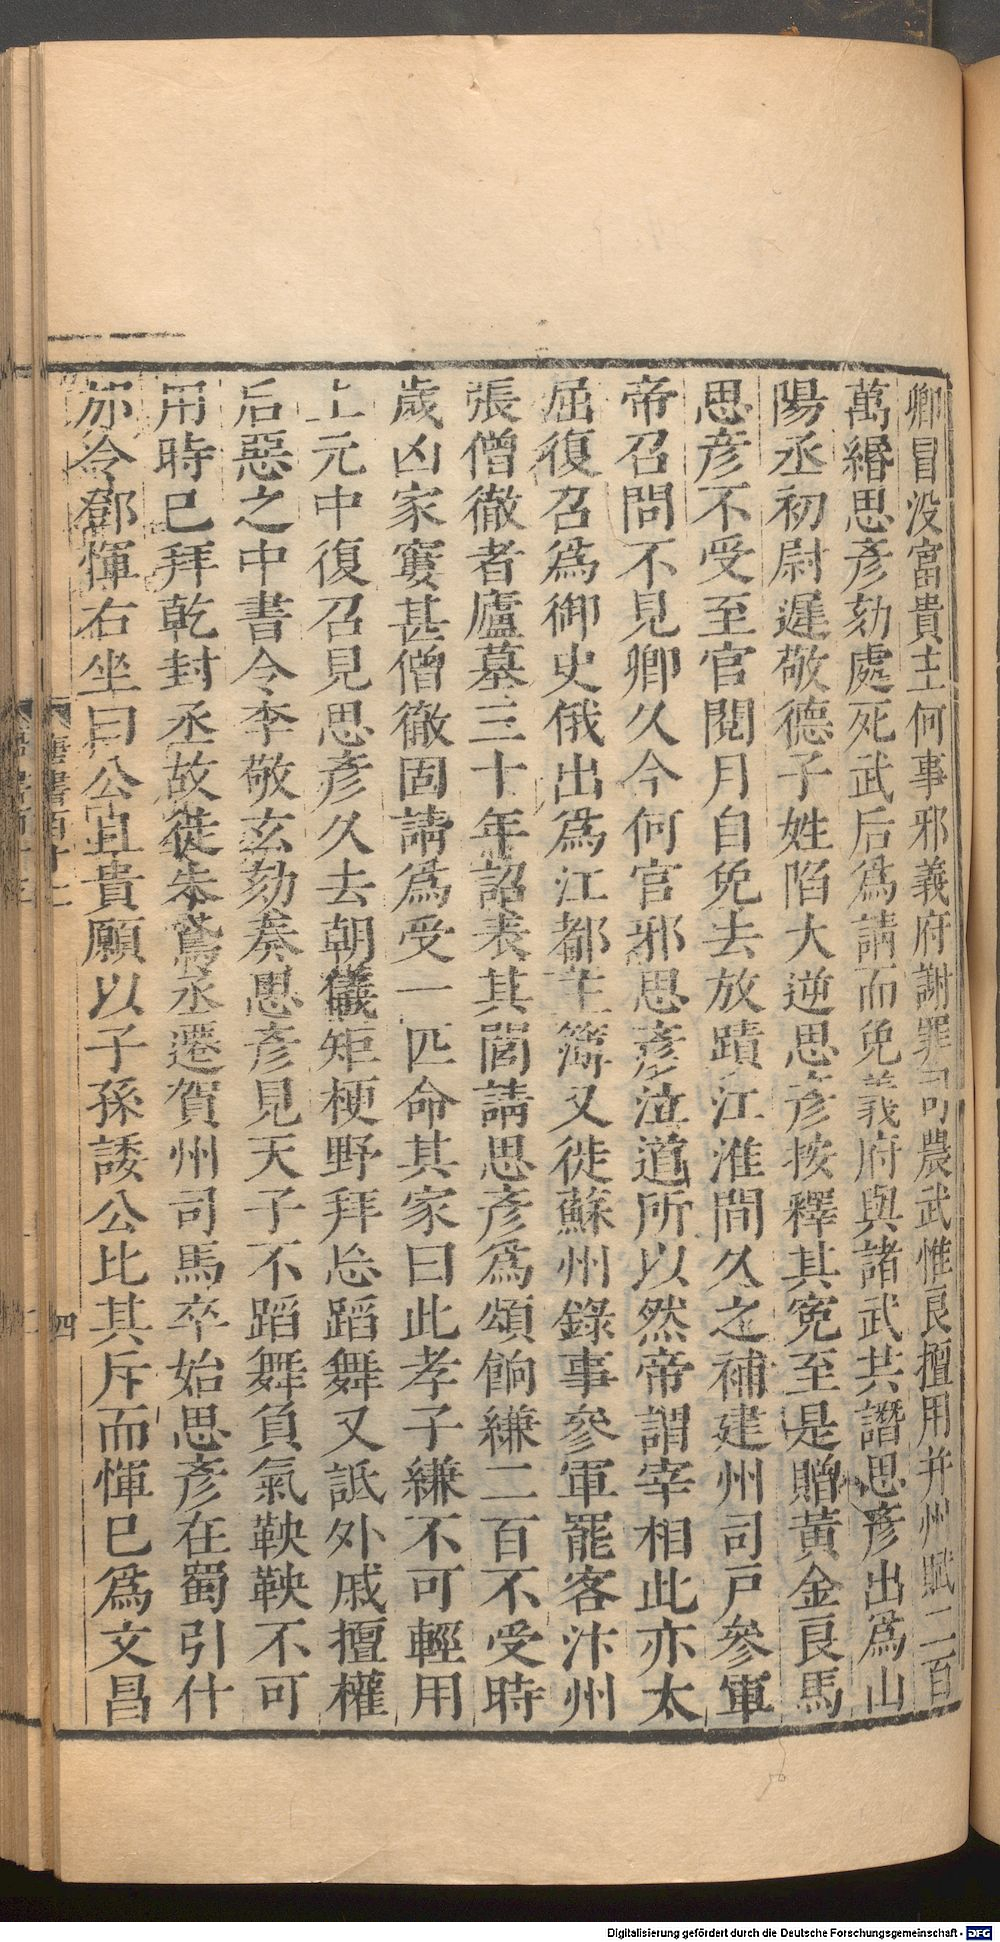 卿冒没富貴主何事邪義府謝罪司農武惟良擅用并州賦二百
萬緡思彥劾處死武后爲請而免義府與諸武共譖思彥出爲山
陽丞初尉遲敬德子姓陷大逆思彥按釋其冤至是贈黃金良馬
思彥不受至官閱月自免去放蹟江淮間久之補建州司戶參軍
帝召問不見卿久今何官邪思彥泣道所以然帝謂宰相此亦太
屈復召爲御史俄出爲江都主簿又徙蘇州錄事參軍罷客汴州
張僧徹者廬墓三十年詔表其閭請思彥爲頌餉縑二百不受時
歲凶家窶甚僧徹固請爲受一匹命其家曰此孝子縑不可輕用
上元中復召見思彥久去朝儀矩梗野拜忘蹈舞又詆外戚擅權
后惡之中書令李敬玄劾奏思彥見天子不蹈舞負氣鞅鞅不可
用時已拜乾封丞故徙朱鳶丞遷賀州司馬卒始思彥在蜀引什
邡令鄧惲右坐曰公且貴願以子孫諉公比其斥而惲已爲文昌
唐書百十二
四
Digitalisierung gefördert durch die Deutsche Forschungsgemeinschaft - DFG